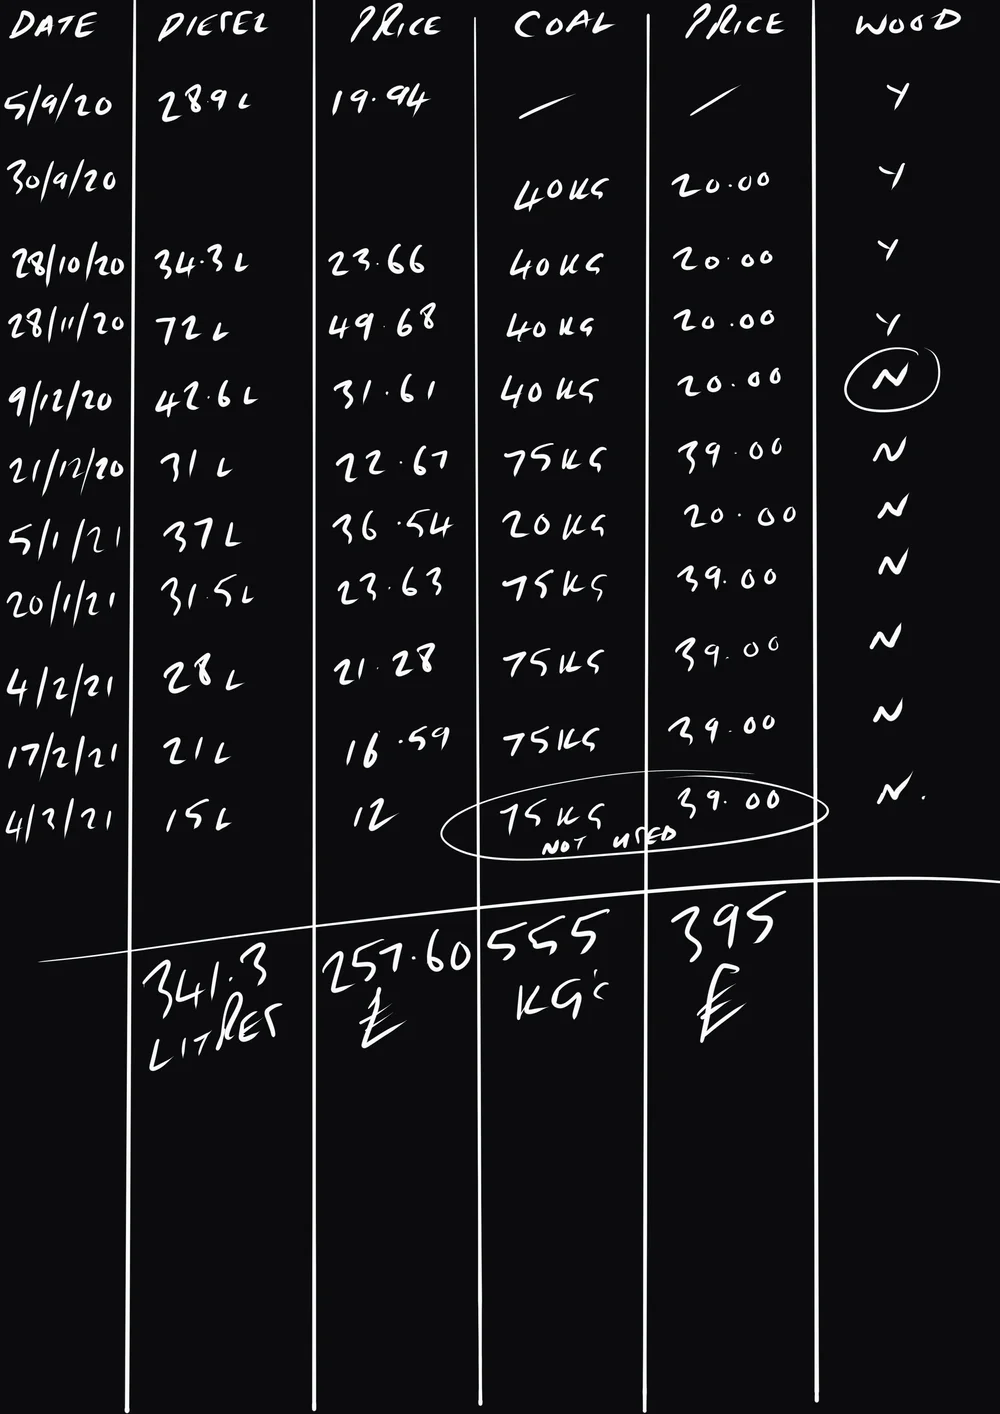 DATE DIESEL PRICE COAL PRICE WOOD
5/9/20 28.9L 19.94 — — Y
30/9/20 40KG 20.00 Y
28/10/20 34.3L 23.66 40KG 20.00 Y
28/11/20 72L 49.68 40KG 20.00 Y
9/12/20 42.6L 31.61 40KG 20.00 N
21/12/20 31L 22.67 75KG 39.00 N
5/1/21 37L 36.54 20KG 20.00 N
20/1/21 31.5L 23.63 75KG 39.00 N
4/2/21 28L 21.28 75KG 39.00 N
17/2/21 21L 16.59 75KG 39.00 N
4/3/21 15L 12 75KG 39.00 N.
NOT USED
341.3 257.60 555 395
LITRES £ KG's £